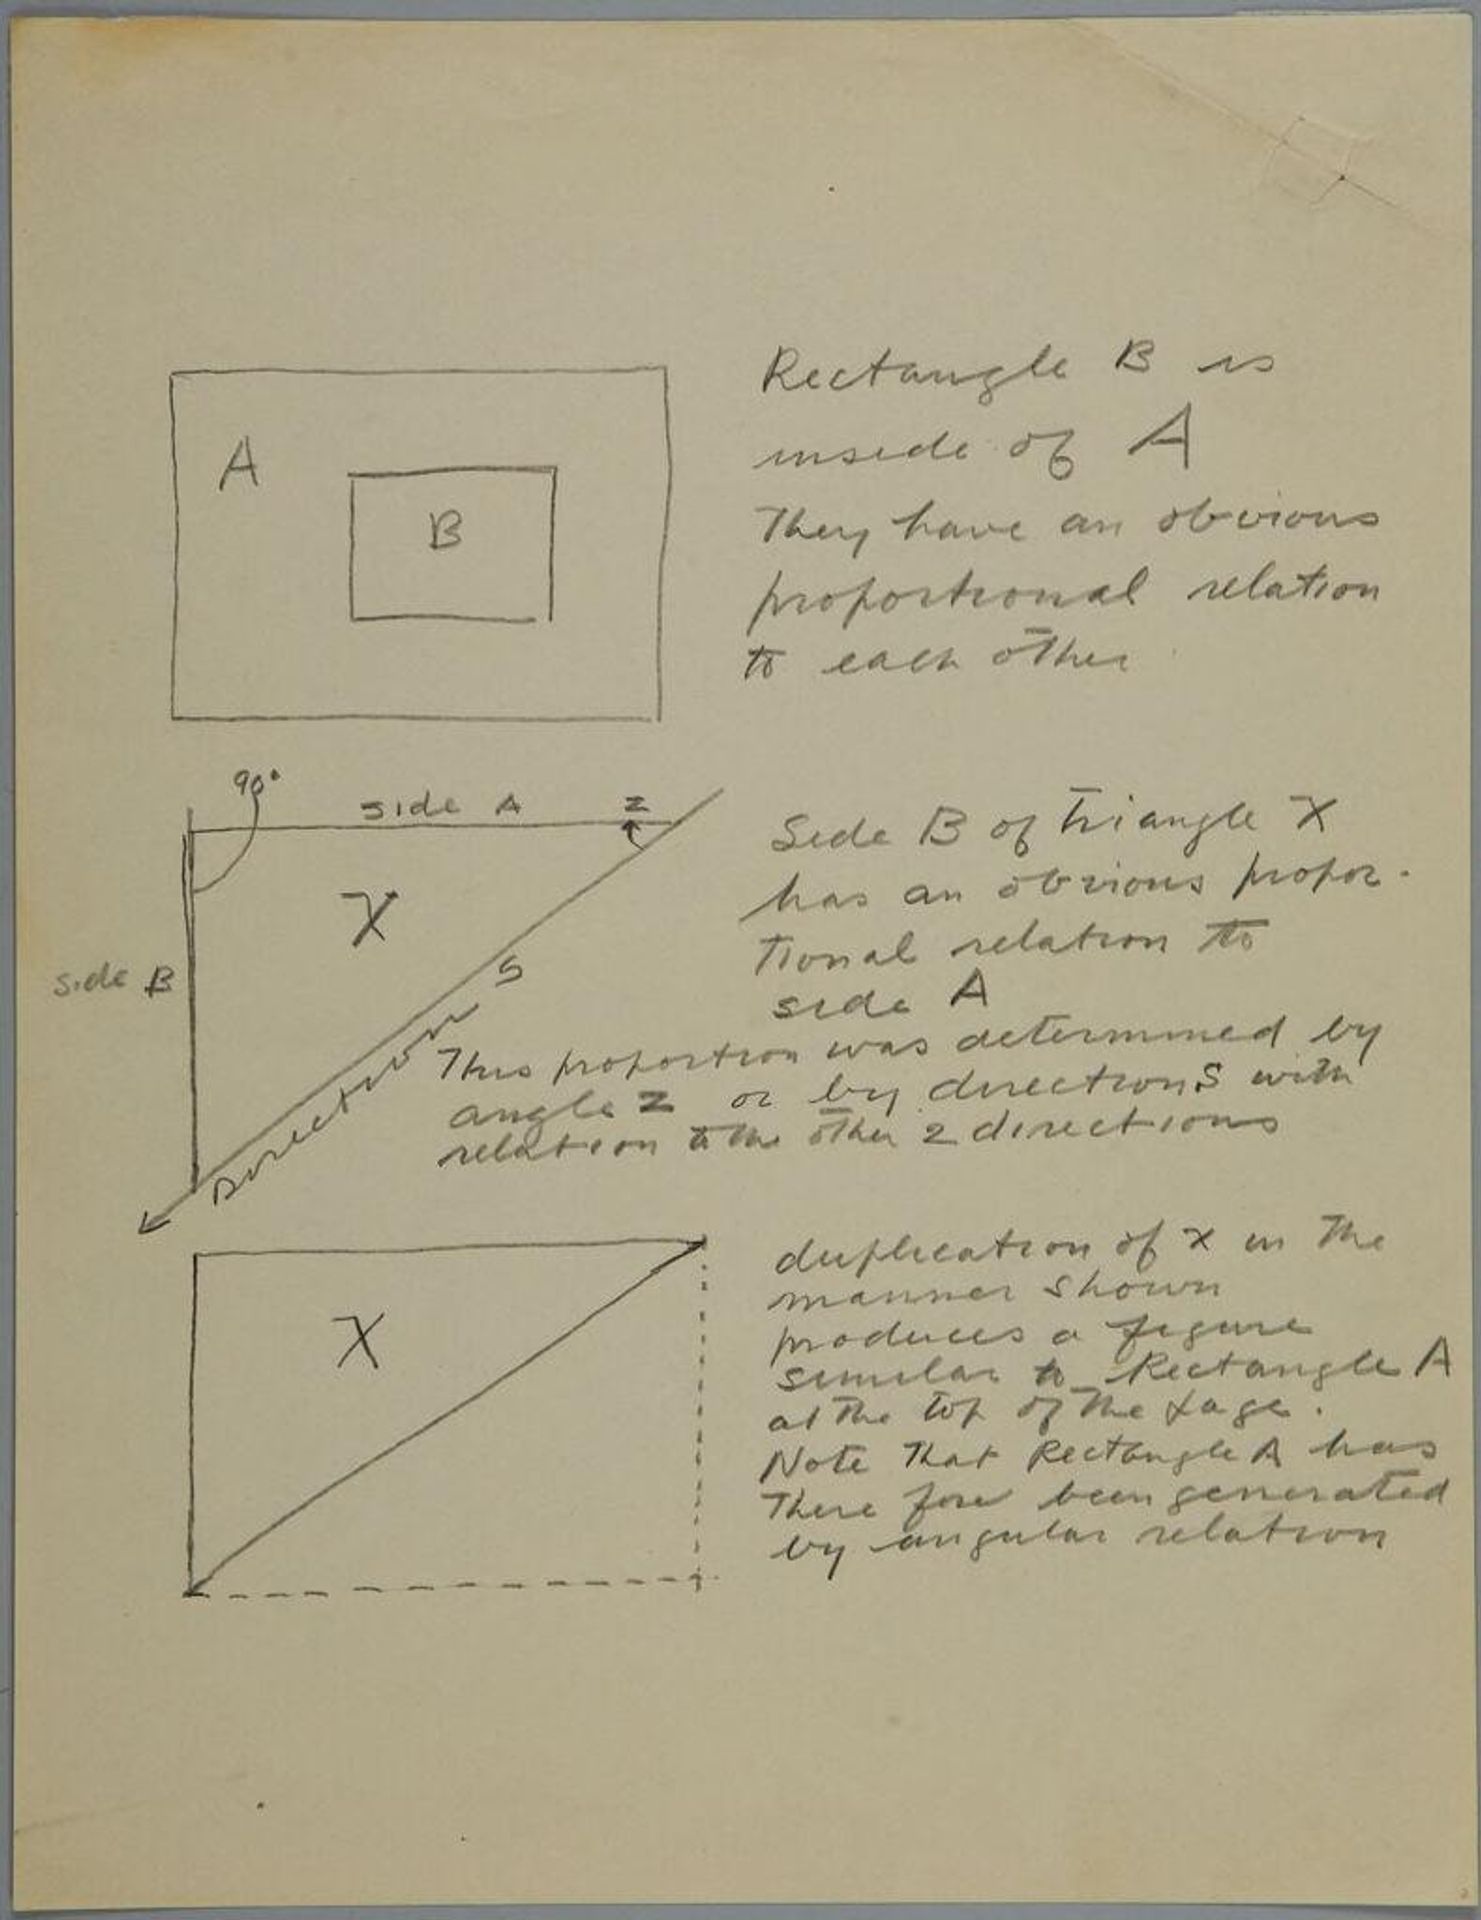 Rectangle B is
inside of A
They have an obvious
proportional relation
to each other
A
B
90°
side A
z
X
side B
S
Direction
Side B of triangle X
has an obvious propor-
tional relation to
side A
This proportion was determined by
angle z or by direction S with
relation to the other 2 directions
X
duplication of X in the
manner shown
produces a figure
similar to Rectangle A
at the top of the page.
Note that Rectangle A has
There fore been generated
by angular relation